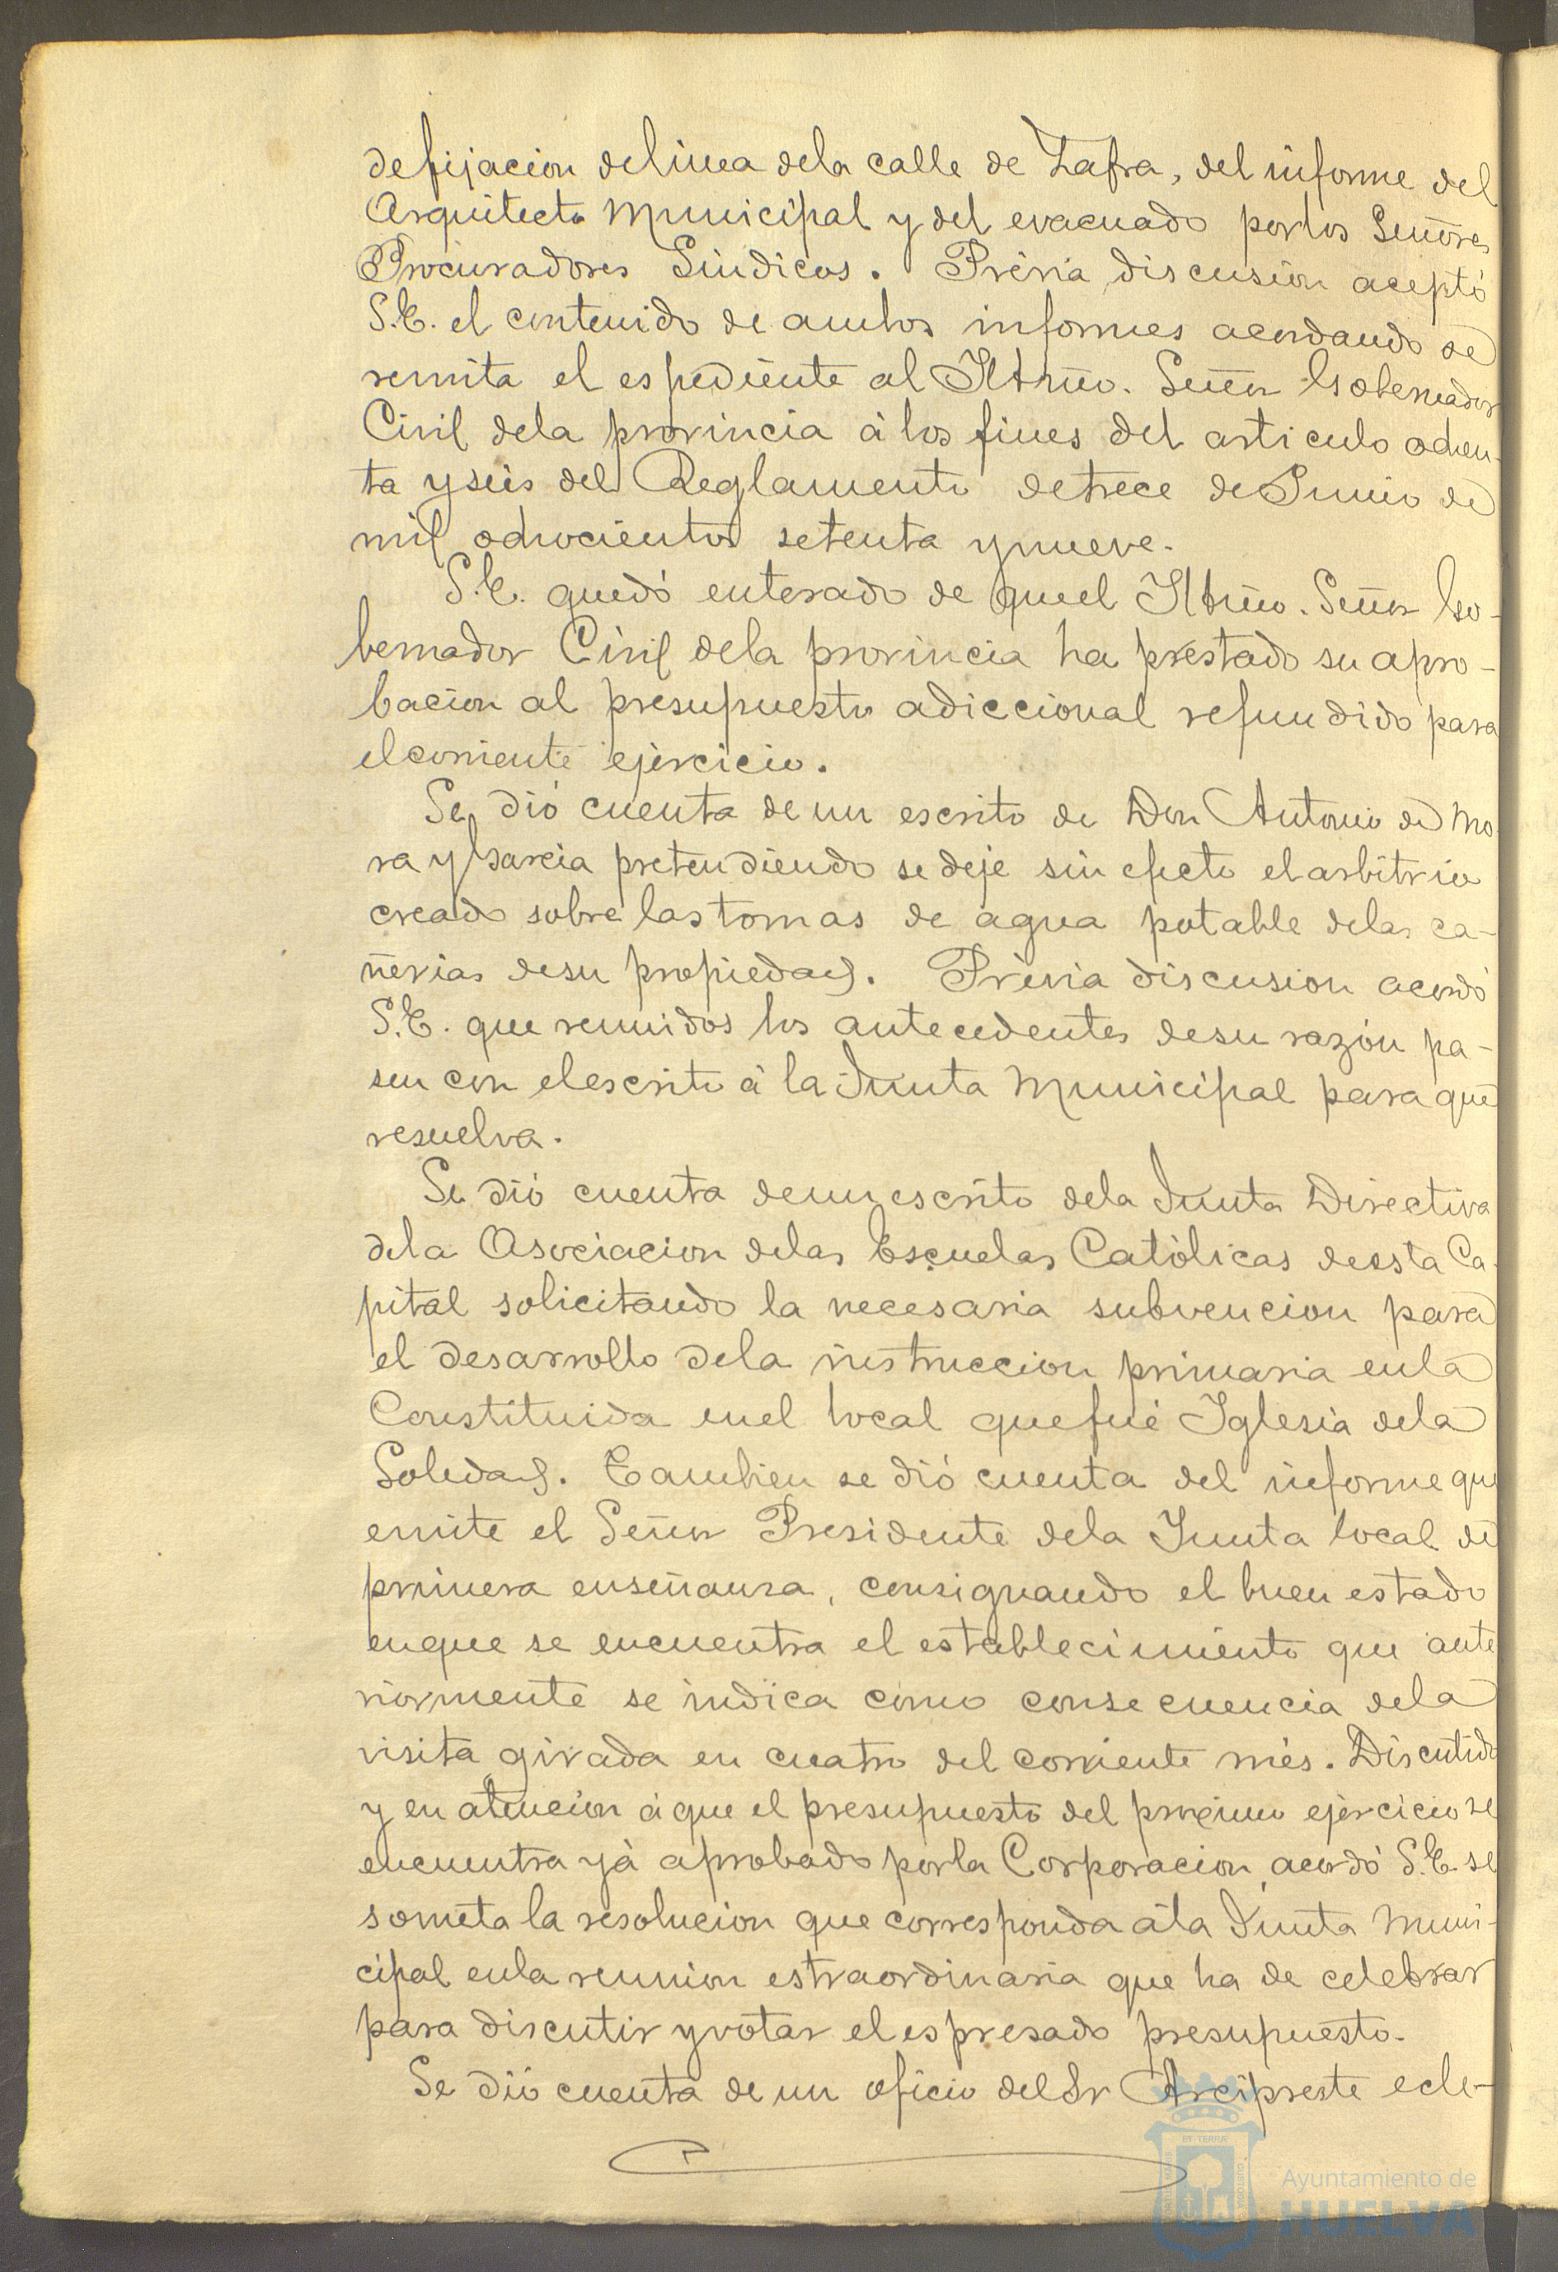 de fijacion de linea de la calle de Zafra, del informe del
Arquitecto Municipal y del evacuado por los Señores
Procuradores Sindicos. Prévia discusión aceptó
S.E. el contenido de ambos informes acordando se
remita el espediente al Iltmo. Señor Gobernador
Civil de la provincia á los fines del articulo ochen-
ta y seis del Reglamento de trece de Junio de
mil ochocientos setenta y nueve.
S.E. quedó enterado de que el Iltmo. Señor Go-
bernador Civil de la provincia ha prestado su apro-
bacion al presupuesto adiccional refundido para
el corriente ejercicio.
Se dió cuenta de un escrito de Don Antonio de Mo-
ra y Garcia pretendiendo se deje sin efecto el arbitrio
creado sobre las tomas de agua potable de las ca-
ñerias de su propiedad. Prévia discusion acordó
S.E. que reunidos los antecedentes de su razón pa-
sen con el escrito á la Junta Municipal para que
resuelva.
Se dió cuenta de un escrito de la Junta Directiva
de la Asociacion de las Escuelas Católicas de esta Ca-
pital solicitando la necesaria subvencion para
el desarrollo de la instruccion primaria en la
Constituida en el local que fué Iglesia de la
Soledad. Tambien se dió cuenta del informe que
emite el Señor Presidente de la Junta local de
primera enseñanza, consignando el buen estado
en que se encuentra el establecimiento que ante
riormente se indica como consecuencia de la
visita girada en cuatro del corriente més. Discutido
y en atencion á que el presupuesto del proximo ejercicio se
encuentra yá aprobado por la Corporacion, acordó S.E. se
someta la resolucion que corresponda á la Junta Muni-
cipal en la reunion estraordinaria que ha de celebrar
para discutir y votar el espresado presupuesto.
Se dió cuenta de un oficio del Sr Arcipreste ecle-
Ayuntamiento de
HUELVA